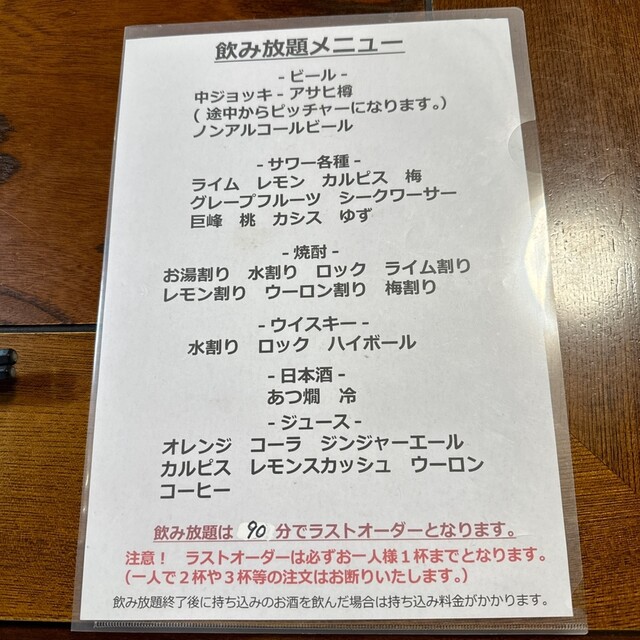 飲み放題メニュー
- ビール -
中ジョッキ - アサヒ樽
( 途中からピッチャーになります。)
ノンアルコールビール
- サワー各種 -
ライム レモン カルピス 梅
グレープフルーツ シークワーサー
巨峰 桃 カシス ゆず
- 焼酎 -
お湯割り 水割り ロック ライム割り
レモン割り ウーロン割り 梅割り
- ウイスキー -
水割り ロック ハイボール
- 日本酒 -
あつ燗 冷
- ジュース -
オレンジ コーラ ジンジャーエール
カルピス レモンスカッシュ ウーロン
コーヒー
飲み放題は 90 分でラストオーダーとなります。
注意！ ラストオーダーは必ずお一人様１杯までとなります。
(一人で２杯や３杯等の注文はお断りいたします。)
飲み放題終了後に持ち込みのお酒を飲んだ場合は持ち込み料金がかかります。